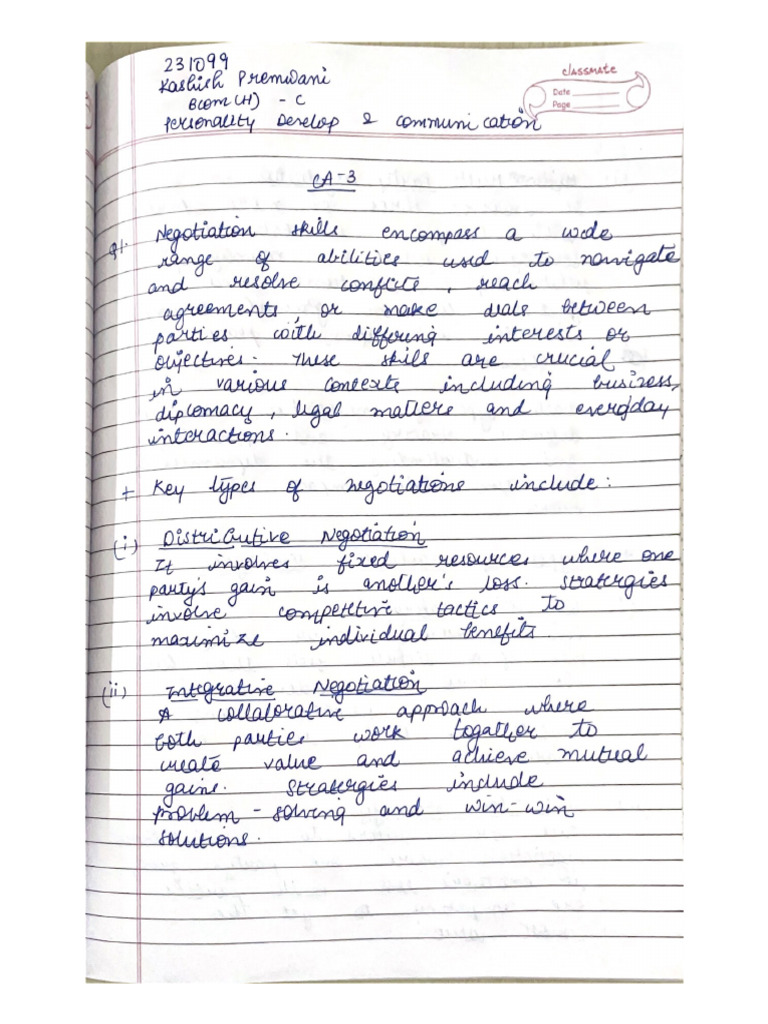 231099
Kashish Premwani
Bcom(H) - C
Personality Develop & communication
classmate
Date
Page
CA-3
Q1. Negotiation skills encompass a wide
range of abilities used to navigate
and resolve conflicts, reach
agreements, or make deals between
parties with differing interests or
objectives. These skills are crucial
in various contexts including business,
diplomacy, legal matters and everyday
interactions.
+ Key types of negotiations include:
(i) Distributive Negotiation
It involves fixed resources where one
party's gain is another's loss. stratergies
involve competitive tactics to
maximize individual benefits.
(ii) Integrative Negotiation
A collaborative approach where
both parties work togather to
create value and achieve mutual
gains. stratergies include
problem-solving and win-win
solutions.